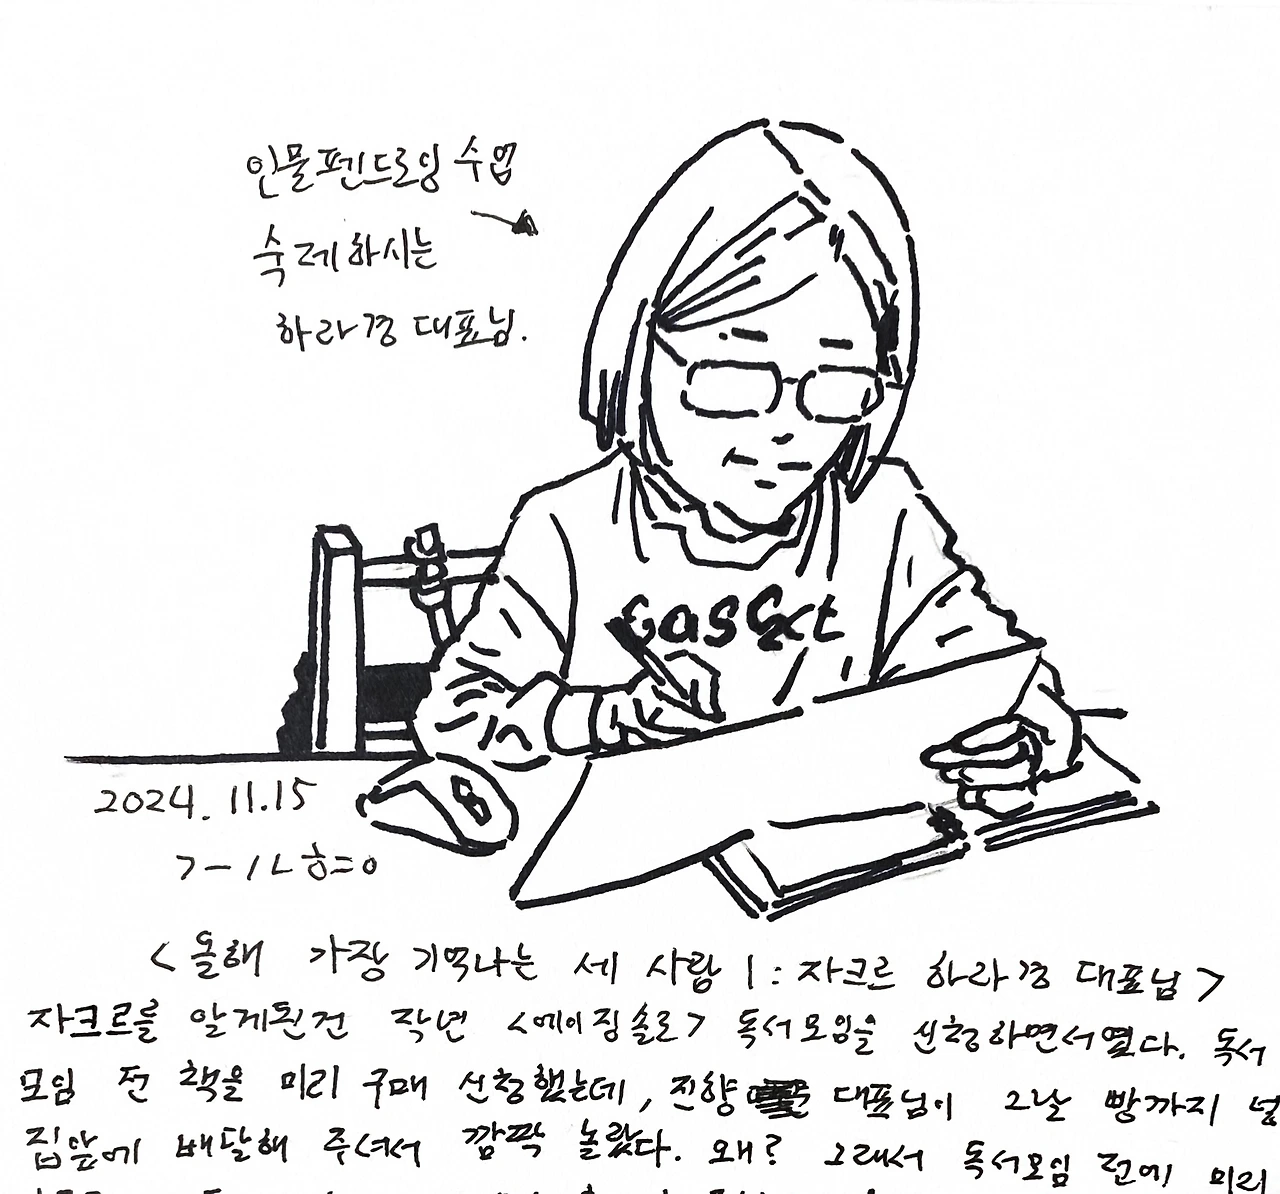 인물펜드로잉 수업
숙제하시는
하라경 대표님.
2024. 11.15
<올해 가장 기억나는 세 사람 1: 자크르 하라경 대표님>
자크르를 알게된건 작년 <에이징솔로> 독서모임을 신청하면서였다. 독서
모임 전 책을 미리 구매 신청했는데, 진향 대표님이 그날 빵까지 넣
집앞에 배달해 주셔서 깜짝 놀랐다. 왜? 그래서 독서모임 전에 미리